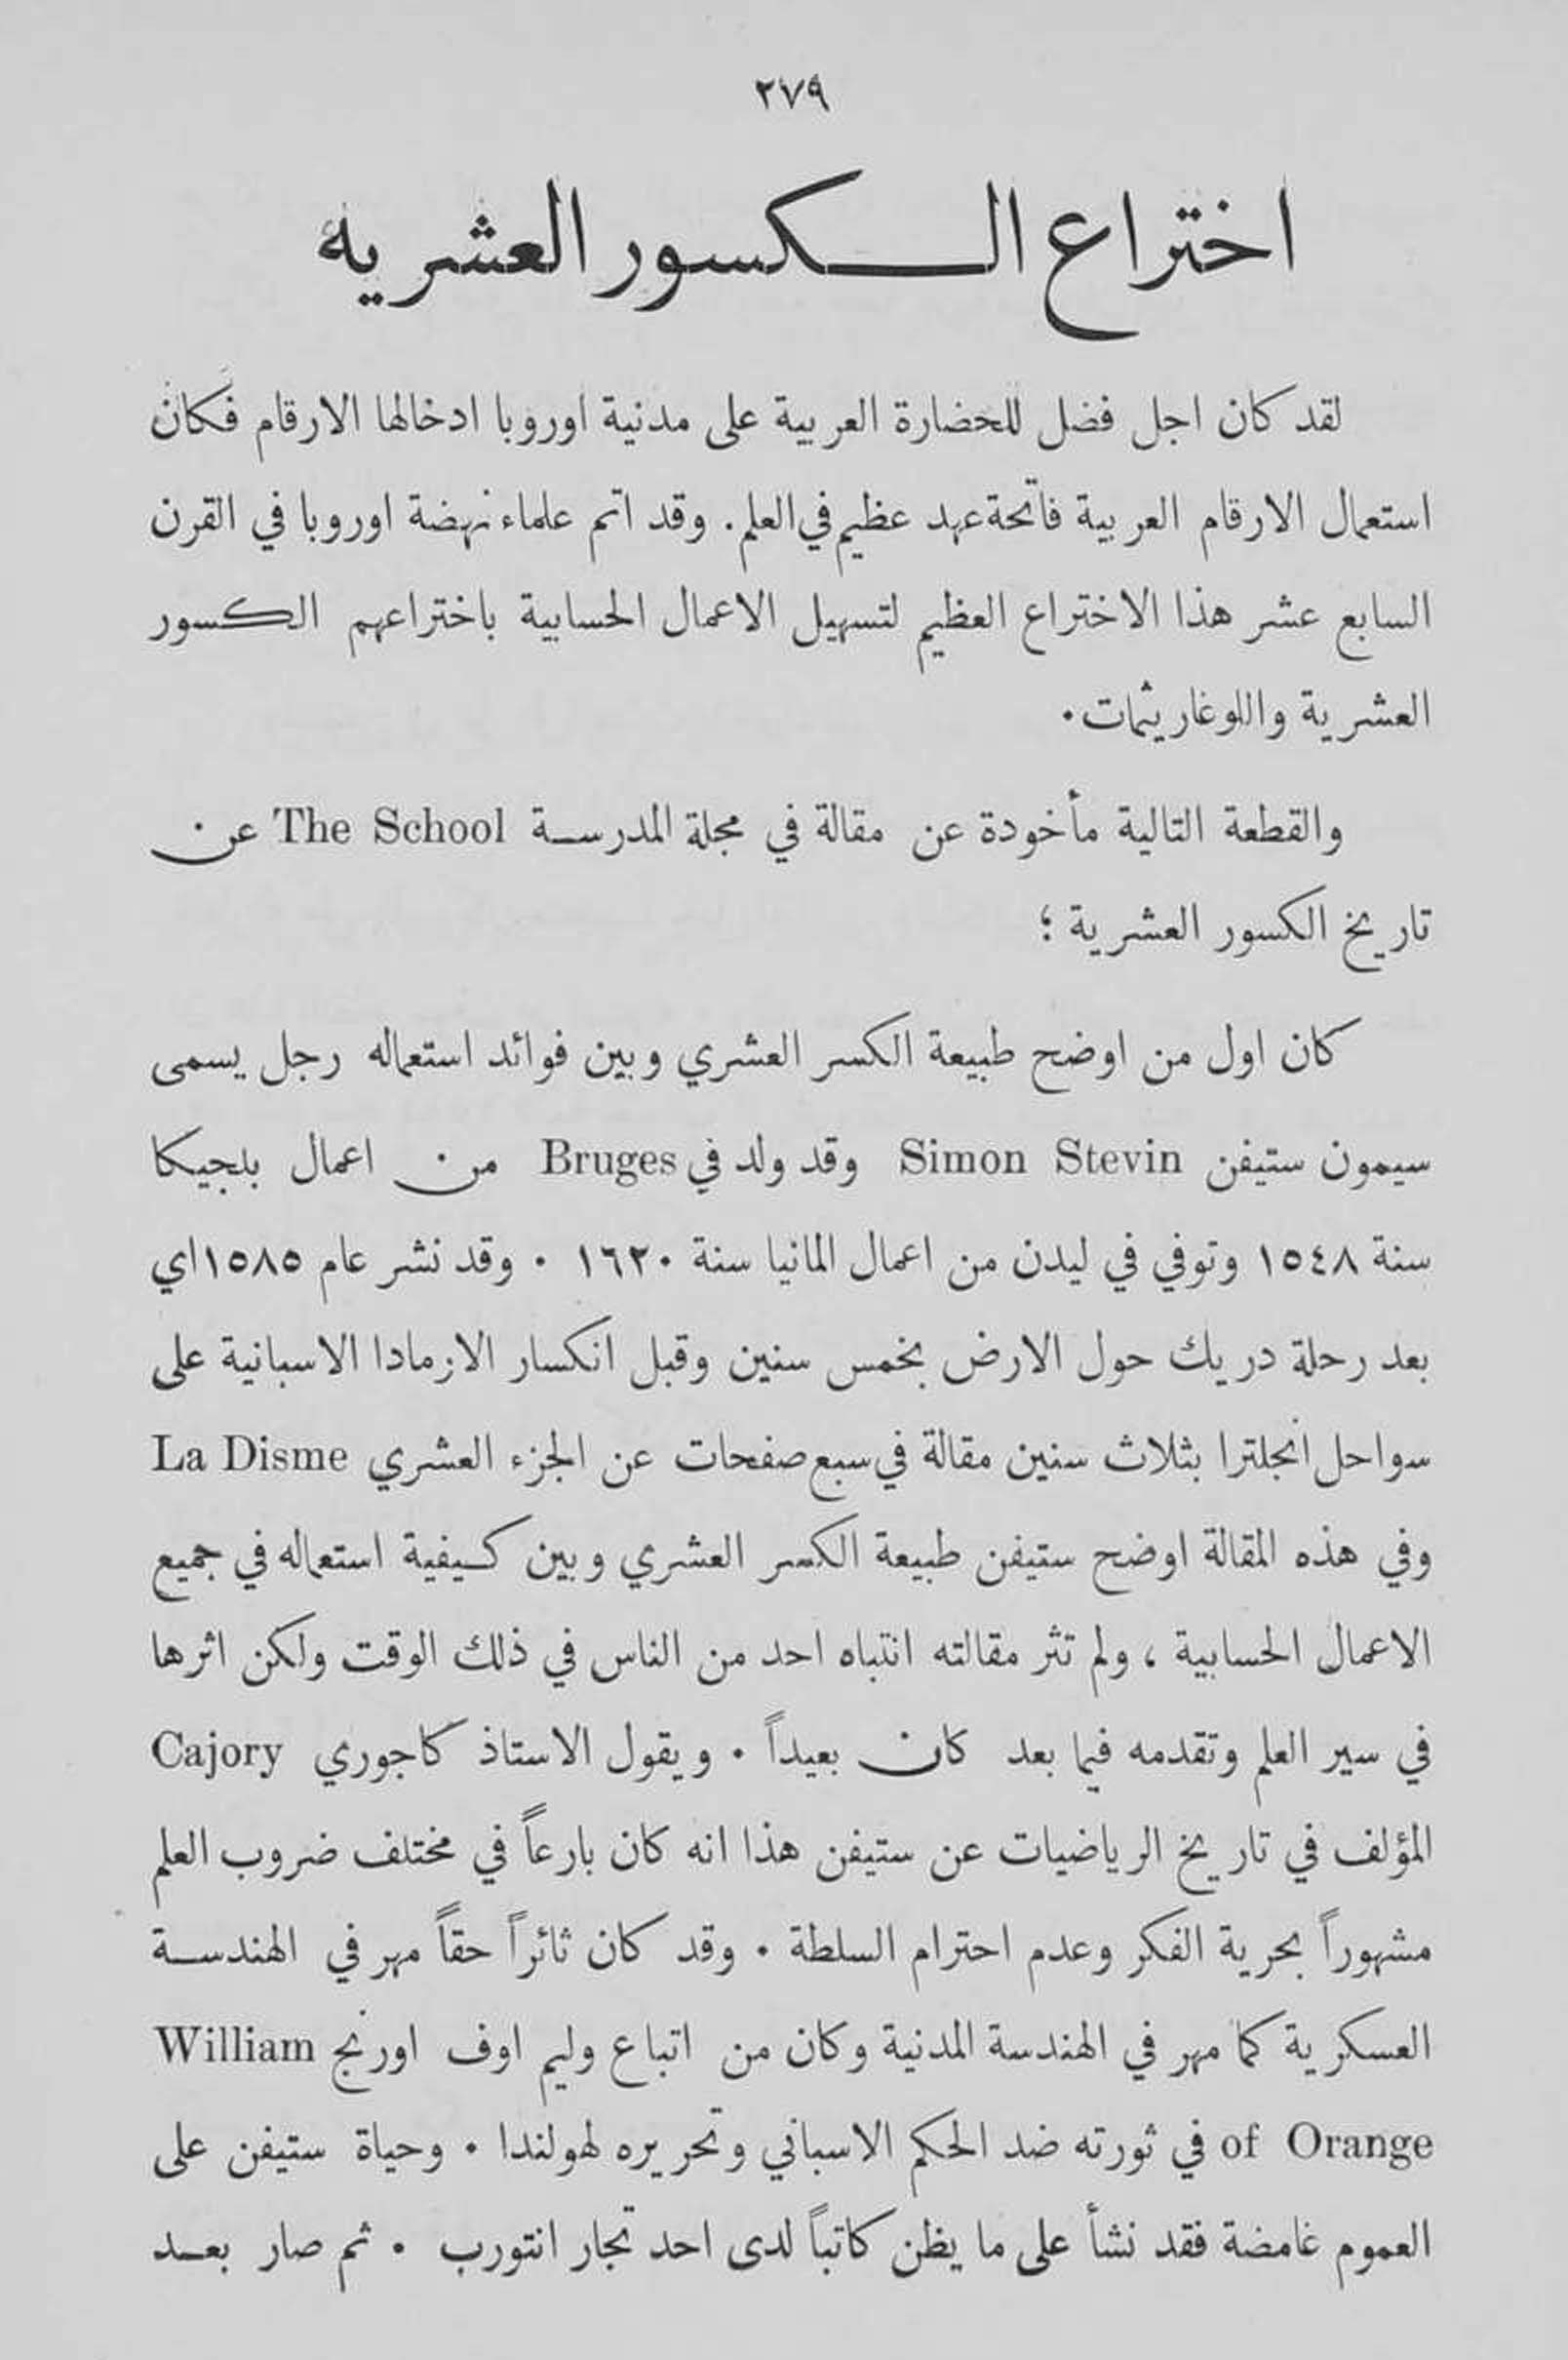 ٢٧٩
اختراع الكسور العشرية
لقد كان اجل فضل للحضارة العربية على مدنية اوروبا ادخالها الارقام فكان
استعمال الارقام العربية فاتحة عهد عظيم في العلم. وقد اتم علماء نهضة اوروبا في القرن
السابع عشر هذا الاختراع العظيم لتسهيل الاعمال الحسابية باختراعهم الكسور
العشرية واللوغاريثمات.
والقطعة التالية مأخودة عن مقالة في مجلة المدرسة The School عن
تاريخ الكسور العشرية ؛
كان اول من اوضح طبيعة الكسر العشري وبين فوائد استعماله رجل يسمى
سيمون ستيفن Simon Stevin وقد ولد في Bruges من اعمال بلجيكا
سنة ١٥٤٨ وتوفي في ليدن من اعمال المانيا سنة ١٦٢٠ . وقد نشر عام ١٥٨٥ اي
بعد رحلة دريك حول الارض بخمس سنين وقبل انكسار الارمادا الاسبانية على
سواحل انجلترا بثلاث سنين مقالة في سبع صفحات عن الجزء العشري La Disme
وفي هذه المقالة اوضح ستيفن طبيعة الكسر العشري وبين كيفية استعماله في جميع
الاعمال الحسابية ، ولم تثر مقالته انتباه احد من الناس في ذلك الوقت ولكن اثرها
في سير العلم وتقدمه فيما بعد كان بعيداً . ويقول الاستاذ كاجوري Cajory
المؤلف في تاريخ الرياضيات عن ستيفن هذا انه كان بارعاً في مختلف ضروب العلم
مشهوراً بحرية الفكر وعدم احترام السلطة . وقد كان ثائراً حقاً مهر في الهندسة
العسكرية كما مهر في الهندسة المدنية وكان من اتباع وليم اوف اورنج William
of Orange في ثورته ضد الحكم الاسباني وتحريره لهولندا . وحياة ستيفن على
العموم غامضة فقد نشأ على ما يظن كاتباً لدى احد تجار انتورب . ثم صار بعد